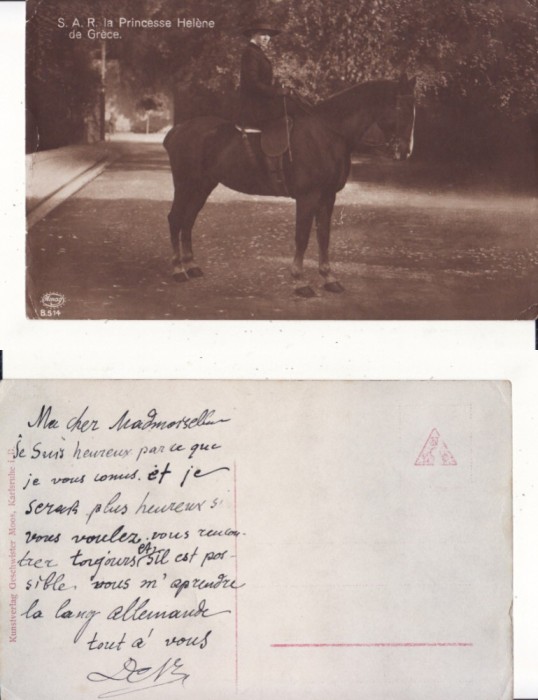 S. A. R. la Princesse Hélène
de Grèce.
B.514
Ma cher Madmoiselle
Je Suis heureux parce que
je vous conus. et je
serait plus heureux si
vous voulez. vous rencon-
trer toujours et s'il est pos-
sible. vous m'aprendre
la lang allemande
tout a' vous
Kunstverlag Geschwister Moos, Karlsruhe i. B.